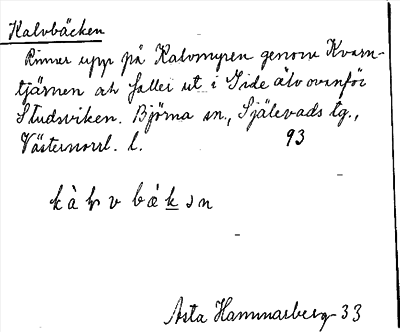 Kalvbäcken
Rinner upp på Kalvmyren genom Kvarn-
tjärnen och faller ut i Gide älv ovanför
Studsviken. Björna sn., Själevads tg.,
Västernorrl. l. 93
Asta Hammarberg 33